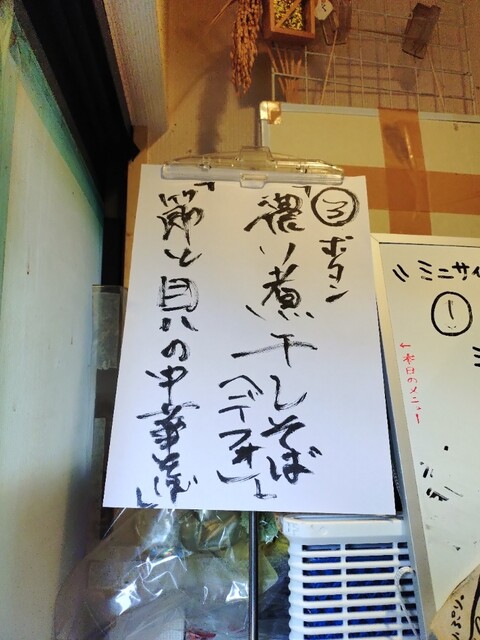 ③ボタン
「濃い煮干しそば
(デフォ)」と
「節と貝の中華そば」
ミニサイ
①
←本日のメニュー